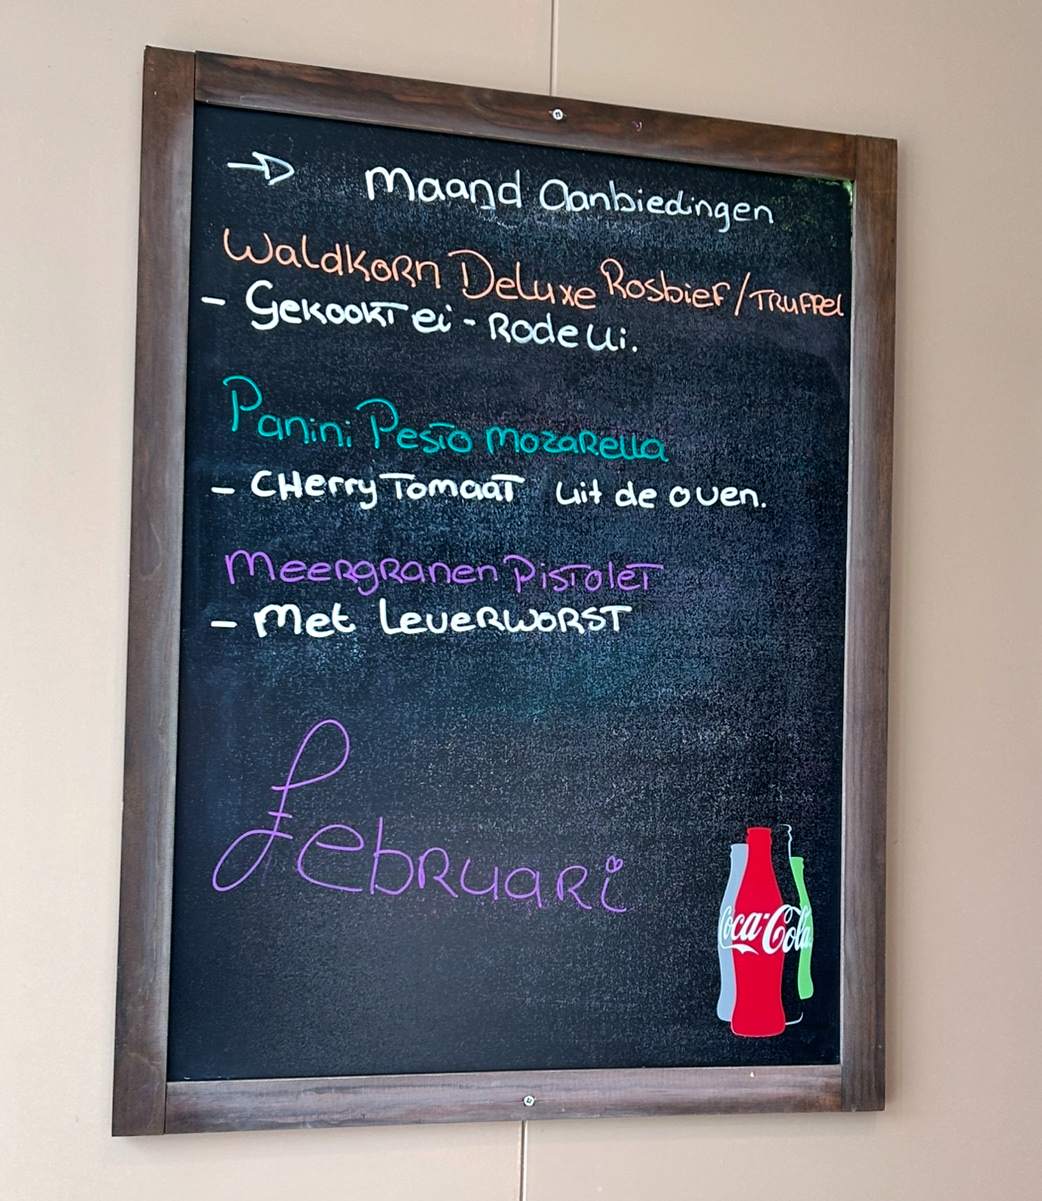 Maand Aanbiedingen
Waldkorn Deluxe Rosbief/Truffel
- Gekookt ei - Rode ui.
Panini Pesto mozarella
- Cherry Tomaat uit de oven.
Meergranen Pistolet
- Met Leverworst
Februari
Coca-Cola